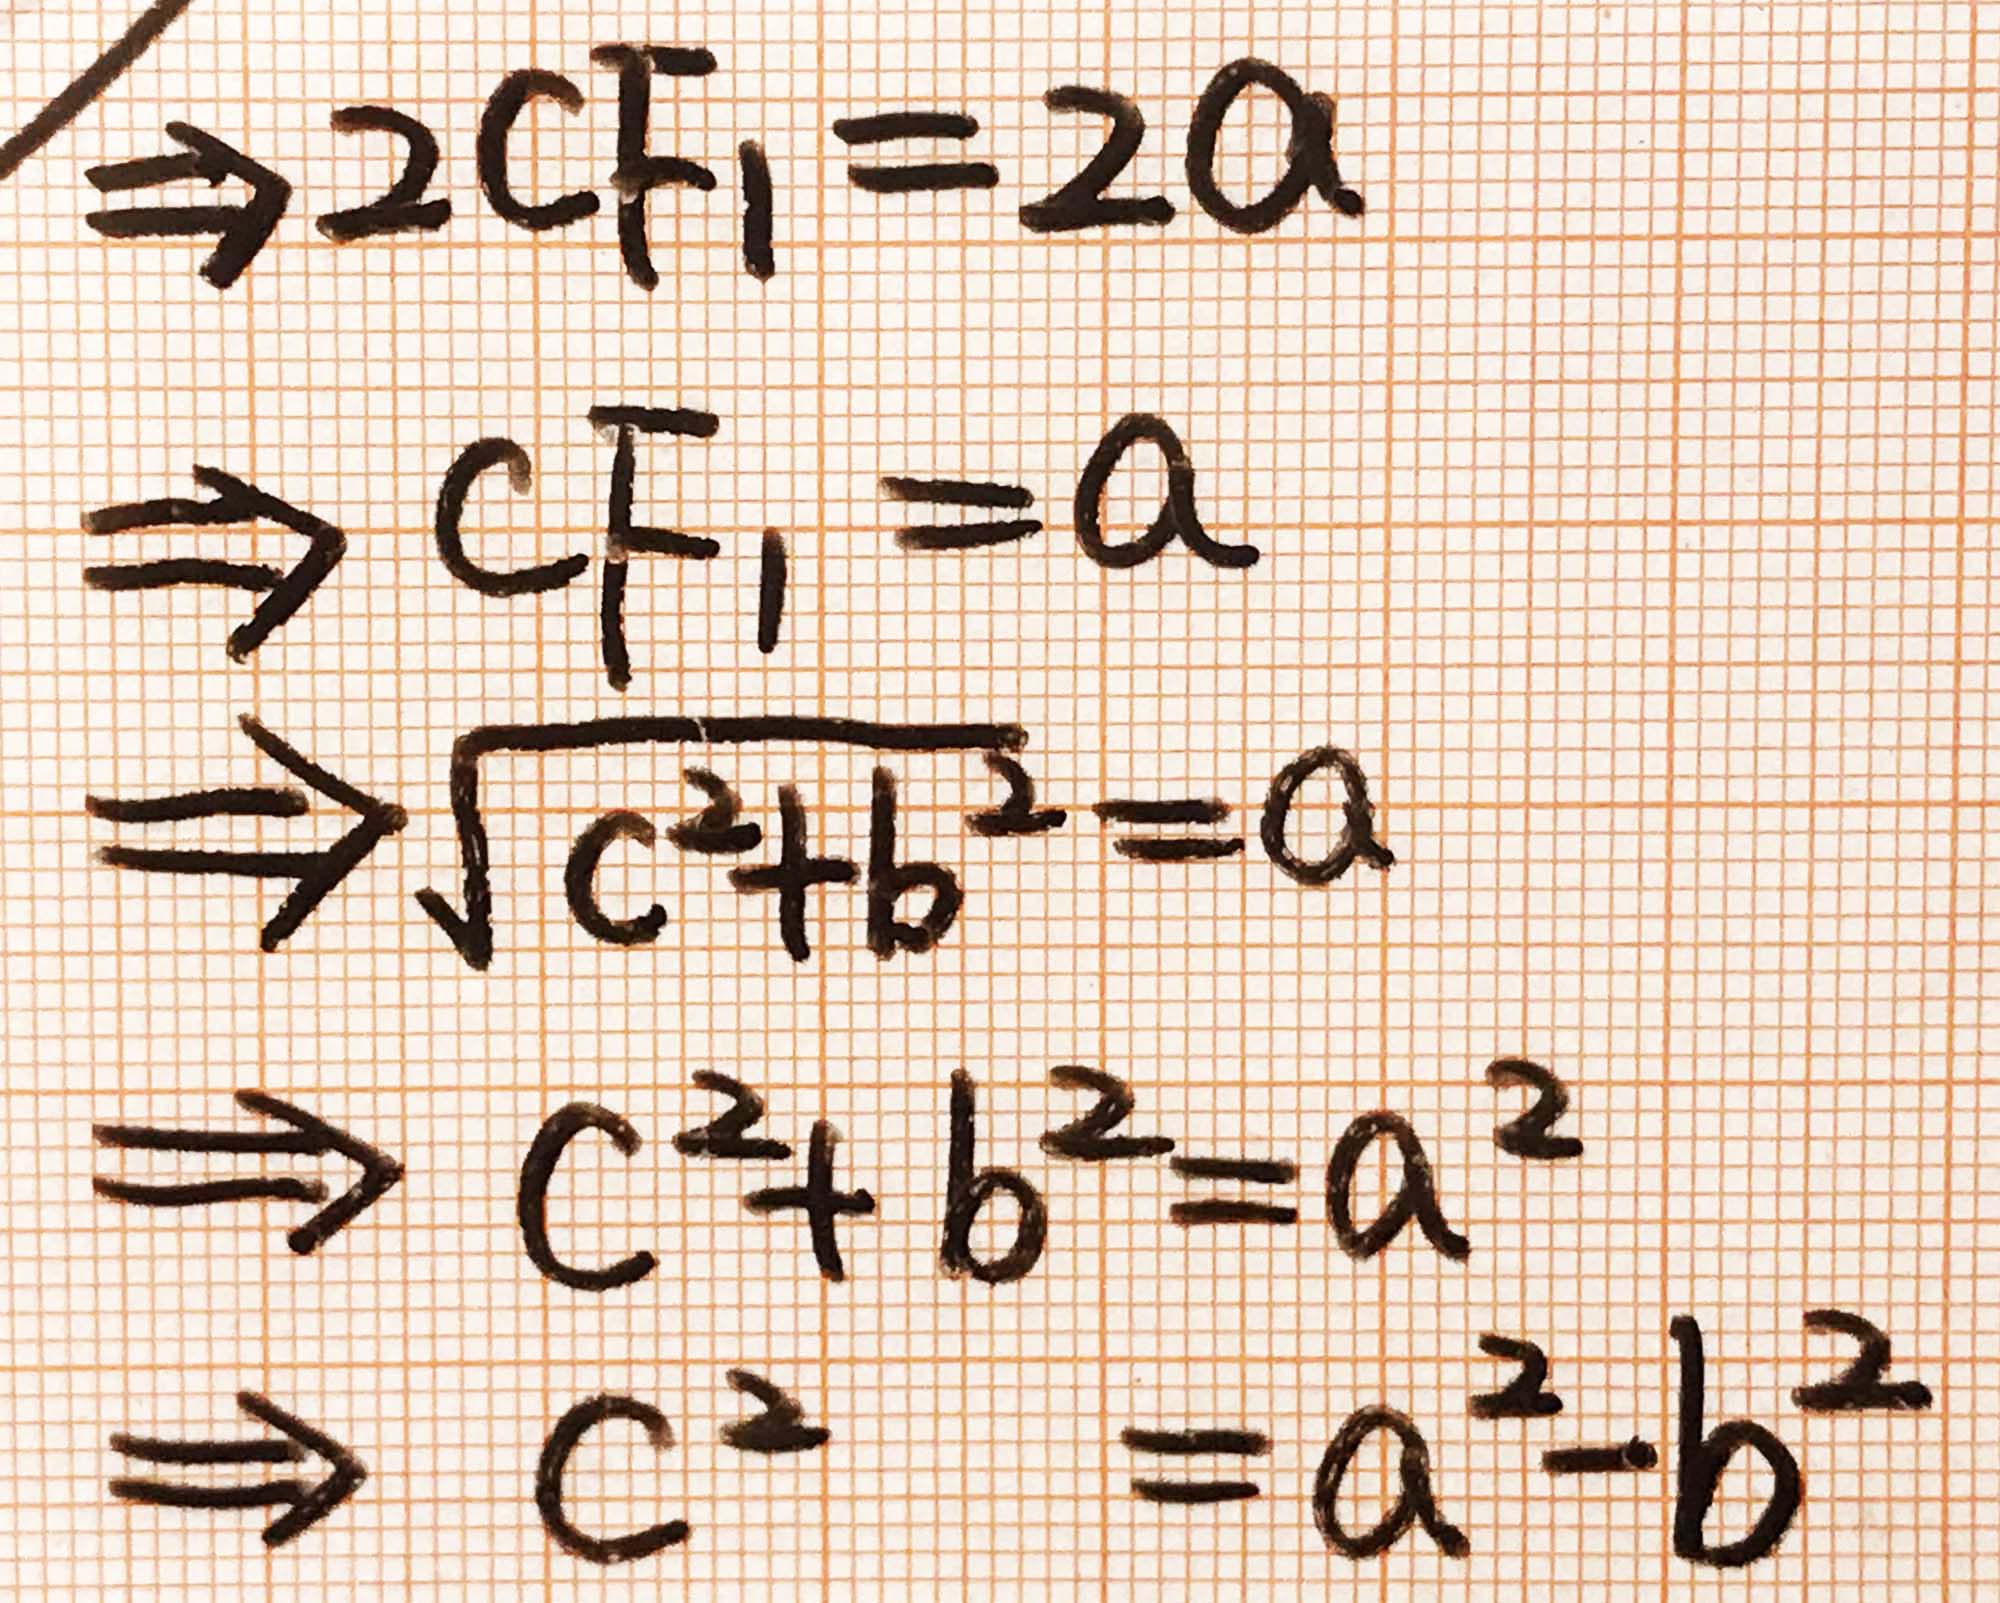 ⇒ 2CF₁ = 2a
⇒ CF₁ = a
⇒ √(c²+b²) = a
⇒ c² + b² = a²
⇒ c² = a² - b²